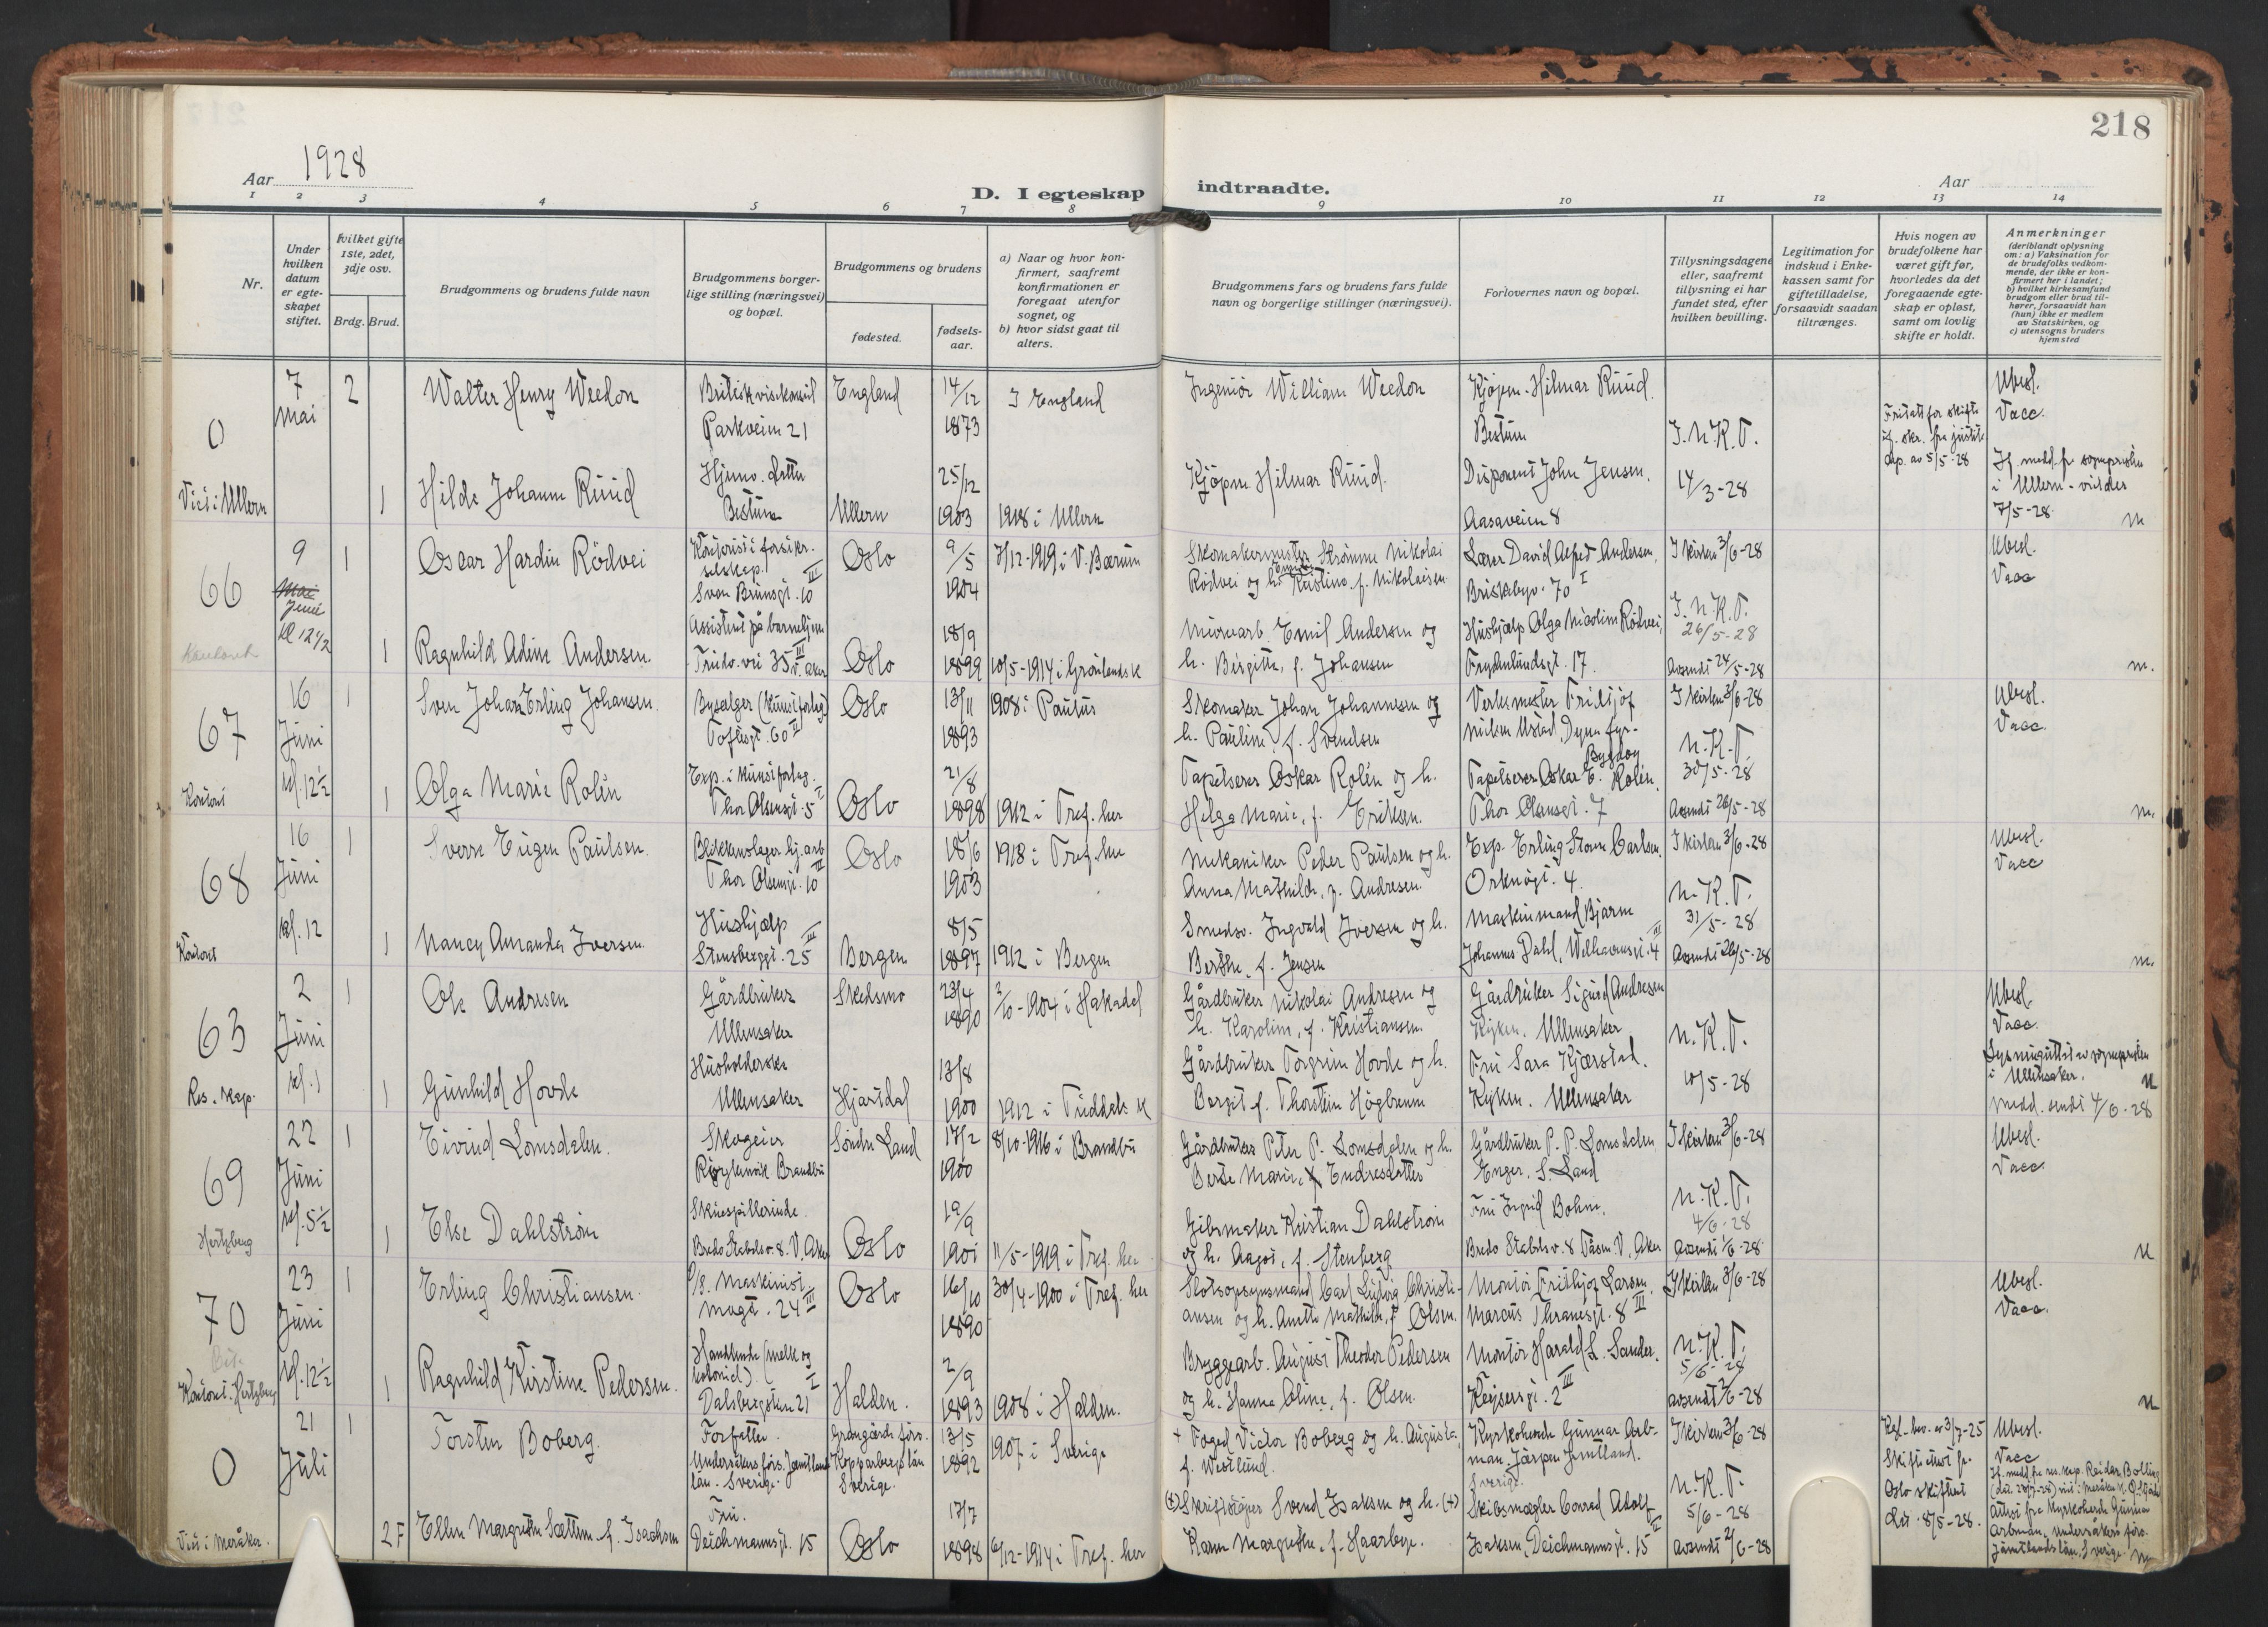 218
Aar 1928
D. I egteskap indtraadte.
Aar
1 2 3 4 5 6 7 8 9 10 11 12 13 14
Nr.
Under
hvilken
datum
er egte-
skapet
stiftet.
hvilket gifte
1ste, 2det,
3dje osv.
Brdg. Brud.
Brudgommens og brudens fulde navn
Brudgommens borger-
lige stilling (næringsvei)
og bopæl.
Brudgommens og brudens
fødested.
fødsels-
aar.
a) Naar og hvor kon-
firmert, saafremt
konfirmationen er
foregaat utenfor
sognet, og
b) hvor sidst gaat til
alters.
Brudgommens fars og brudens fars fulde
navn og borgerlige stillinger (næringsvei).
Forlovernes navn og bopæl.
Tillysningsdagene
eller, saafremt
tillysning ei har
fundet sted, efter
hvilken bevilling.
Legitimation for
indskud i Enke-
kassen samt for
giftetilladelse,
forsaavidt saadan
tiltrænges.
Hvis nogen av
brudefolkene har
været gift før,
hvorledes da det
foregaaende egte-
skap er opløst,
samt om lovlig
skifte er holdt.
Anmerkninger
(deriblandt oplysning
om: a) Vaksination for
de brudefolks vedkom-
mende, der ikke er kon-
firmert her i landet;
b) hvilket kirkesamfund
brudgom eller brud til-
hører, forsaavidt han
(hun) ikke er medlem
av Statskirken, og
c) utensogns bruders
hjemsted
0
Viet i Ullern
7
Mai
2
Walter Henry Weedon
Britisk visekonsul
Parkveien 21
England
14/12
1873
I England
Ingeniör William Weedon
Kjöpm. Hilmar Ruud
Bestum
I. N.K.T.
14/3-28
Fritatt for skifte
if. skr. fra justits
dep. av 5/5-28
Ubesl.
Vacc.
1
Hilda Johanne Ruud
Hjemv. datter
Bestum
Ullern
25/12
1903
1918 i Ullern
Kjöpm. Hilmar Ruud.
Disponent John Jensen.
Aasaveien 8
If. medd. fr sognepresten
i Ullern - viet der
7/5-28
m
66
9
Mai
Juni
Kl 12 1/2
1
Oscar Hardin Rödvei
Kontorist i forsikr.
selskap.
Sven Brunsgt. 10 III
Oslo
9/5
1904
7/12-1919 i V. Bærum
Skomakermester Strömme Nikolai
Rödvei og h. Kristine f. Nikolaisen
Lærer David Alfred Andersen,
Briskebyv. 70 I
I kirken 3/6-28
I. N.K.T.
26/5-28
Avsendt 24/5-28
Ubesl.
Vacc
1
Ragnhild Adine Andersen.
Assistent på barnehjem
Oslo
18/9
1899
10/5-1914 i Grönlands K
Murarb. Emil Andersen og
h. Birgitte, f. Johansen
Hushjælp Olga Nicoline Rödvei,
Frydenlundsgt. 17.
m.
67
Kontoret
16
Juni
kl. 12 1/2
1
Sven Johan Erling Johansen.
Bysælger (kunstforlag)
Toftesgt. 60 II
Oslo
13/11
1893
1908 i Paulus
Skomaker Johan Johannesen og
h. Pauline, f. Svendsen
Verksmester Fridtjof
Nielsen Ustad, Dyna fyr-
Bygdöy
I kirken 3/6-28
N.K.T.
30/5-28
Avsendt 26/5-28
Ubesl.
Vacc.
1
Olga Marie Rolén
Exp. i kunstforlag.
Thor Olsensgt. 5 I
Oslo
21/8
1898
1912 i Tref. her
Tapetserer Oskar Rolén og h.
Helga Marie, f. Eriksen.
Tapetserer Oskar E. Rolén.
Thor Olsensgt. 7
m.
68
Kontoret
16
Juni
kl. 12
1
Sverre Eugen Paulsen.
Blikkenslager hj. arb
Thor Olsensgt. 10 II
Oslo
18/6
1903
1918 i Tref. her
Mekaniker Peder Paulsen og h.
Anna Mathilde, f. Andresen.
Exp. Erling Storm Carlsen.
Orknögt. 4.
I kirken 3/6-28
N.K.T.
31/5-28
Avsendt 26/5-28
Ubesl.
Vacc
1
Nancy Amanda Iversen.
Hushjælp
Stensberggt. 25 III
Bergen
8/5
1897
1912 i Bergen
Smedsv. Ingvald Iversen og h.
Berthe, f. Jensen
Maskinmand Bjarne
Johannes Dahl, Welhavensgt. 4 III
m.
63
Res. Kap.
2
Juni
kl. 1
1
Ole Andresen
Gårdbruker
Ullensaker
Skedsmo
23/4
1890
2/10-1904 i Hakadal
Gårdbruker Nikolai Andresen og
h. Karoline, f. Kristiansen.
Gårdbruker Sigurd Andresen
Kyken. Ullensaker
N.K.T.
10/5-28
Ubesl.
Vacc.
Lysningsattest av sognepresten
i Ullensaker.
Medd. sendt 4/6-28
1
Gunhild Hovde
Husholderske
Ullensaker
Hjartdal
13/8
1900
1912 i Tuddals K
Gårdbruker Torgrim Hovde og h.
Bergit f. Thorstein Högbrenn
Fru Sara Kjærstad.
Kyken. Ullensaker
69
Hertzberg
22
Juni
kl. 5 1/2
1
Eivind Lomsdalen.
Skogeier
Röykenvik Brandbu
Söndre Land
17/2
1900
8/10-1916 i Brandbu
Gårdbruker Peter P. Lomsdalen og h.
Berte Marie, Endresdatter
Gårdbruker P. P. Lomsdalen
Enger. S. Land
I kirken 3/6-28
N.K.T.
4/6-28
Avsendt 1/6-28
Ubesl.
Vacc.
1
Else Dahlström
Skuespillerinde.
Bredo Stabelsv. 8. V. Aker
Oslo
19/9
1901
11/5-1919 i Tref. her
Gibsmaker Kristian Dahlström
og h. Aagot, f. Stenberg
Fru Ingrid Bohne.
Bredo Stabelsv. 8 Tåsen V. Aker
70
Kontoret. Hertzberg
23
Juni
Kl. 12 1/2
1
Erling Christiansen.
Maskinist
Mogt. 24 III
Oslo
16/10
1890
Slotsopsynsmand Carl Ludvig Christi-
ansen og h. Anette Mathilde, f. Olsen.
Montör Frithjof Larsen.
Marcus Thranesgt. 8 III
I kirken 3/6-28
N.K.T.
5/6-28
avsendt 2/6-28
Ubesl.
Vacc.
1
Ragnhild Kirstine Pedersen.
Handlende (melk og
kolonial).
Dalsbergstien 21 I
Halden.
2/9
1893
1908 i Halden.
Bryggearb. August Theodor Pedersen
og h. Hanna Oline, f. Olsen.
Montör Harald L. Sander.
Keysersgt. 2 III
0
Viet i Meråker.
21
Juli
1
Torsten Boberg.
Forfatter.
Undersåkers förs. Jämtlands
län. Sverige.
Grangärde förs.
Kopparbergs län
Sverige.
13/5
1892
1907 i Sverige
+ Foged Victor Boberg og h. Augusta,
f. Westlund.
Kyrkoherde Gunnar Arb-
man, Järpen Jemtland.
Sverige.
I kirken 3/6-28
N.K.T.
5/6-28
avsendt 2/6-28
Skifteattest fr.
Oslo skifterett
dat. 8/5-28.
Ubesl.
Vacc
If. medd. fr res. kap. Reidar Bolling
Attest fra Kyrkoherde Gunnar
Arbman, Undersåkers förs.
Jämtlands län, Sverige.
2 F
Ellen Margrethe Sættem f. Isachsen
Fru.
Deichmannsgt. 15
Oslo
17/7
1898
6/12-1914 i Tref. her
(+) Skriftstöper Svend Isaksen og h. (+)
Karen Margrethe, f. Haarbye.
Skibsmægler Conrad Adolf
Isaksen, Deichmannsgt. 15 IV